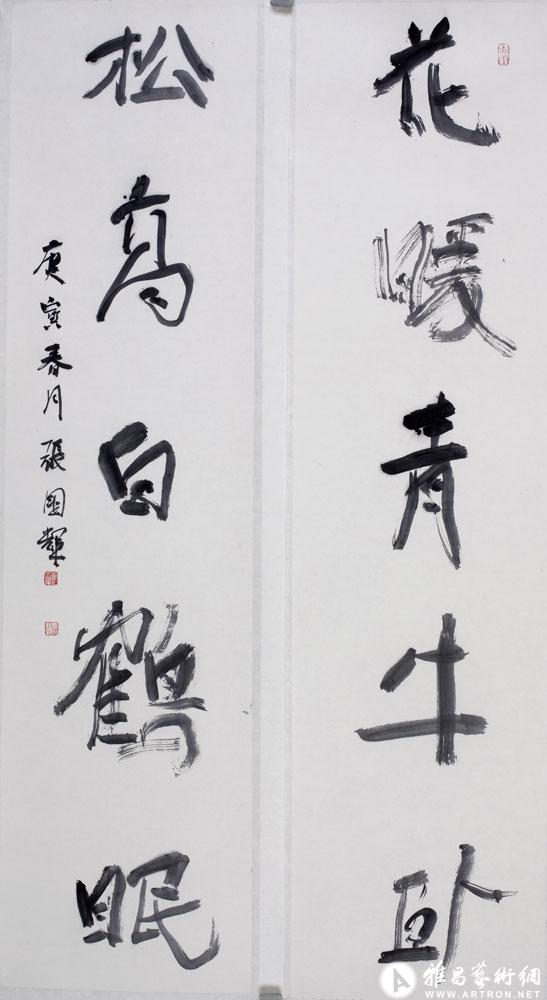 花暖青牛卧
松高白鹤眠
庚寅春月張國輝
雅昌藝術網
WWW.ARTRON.NET